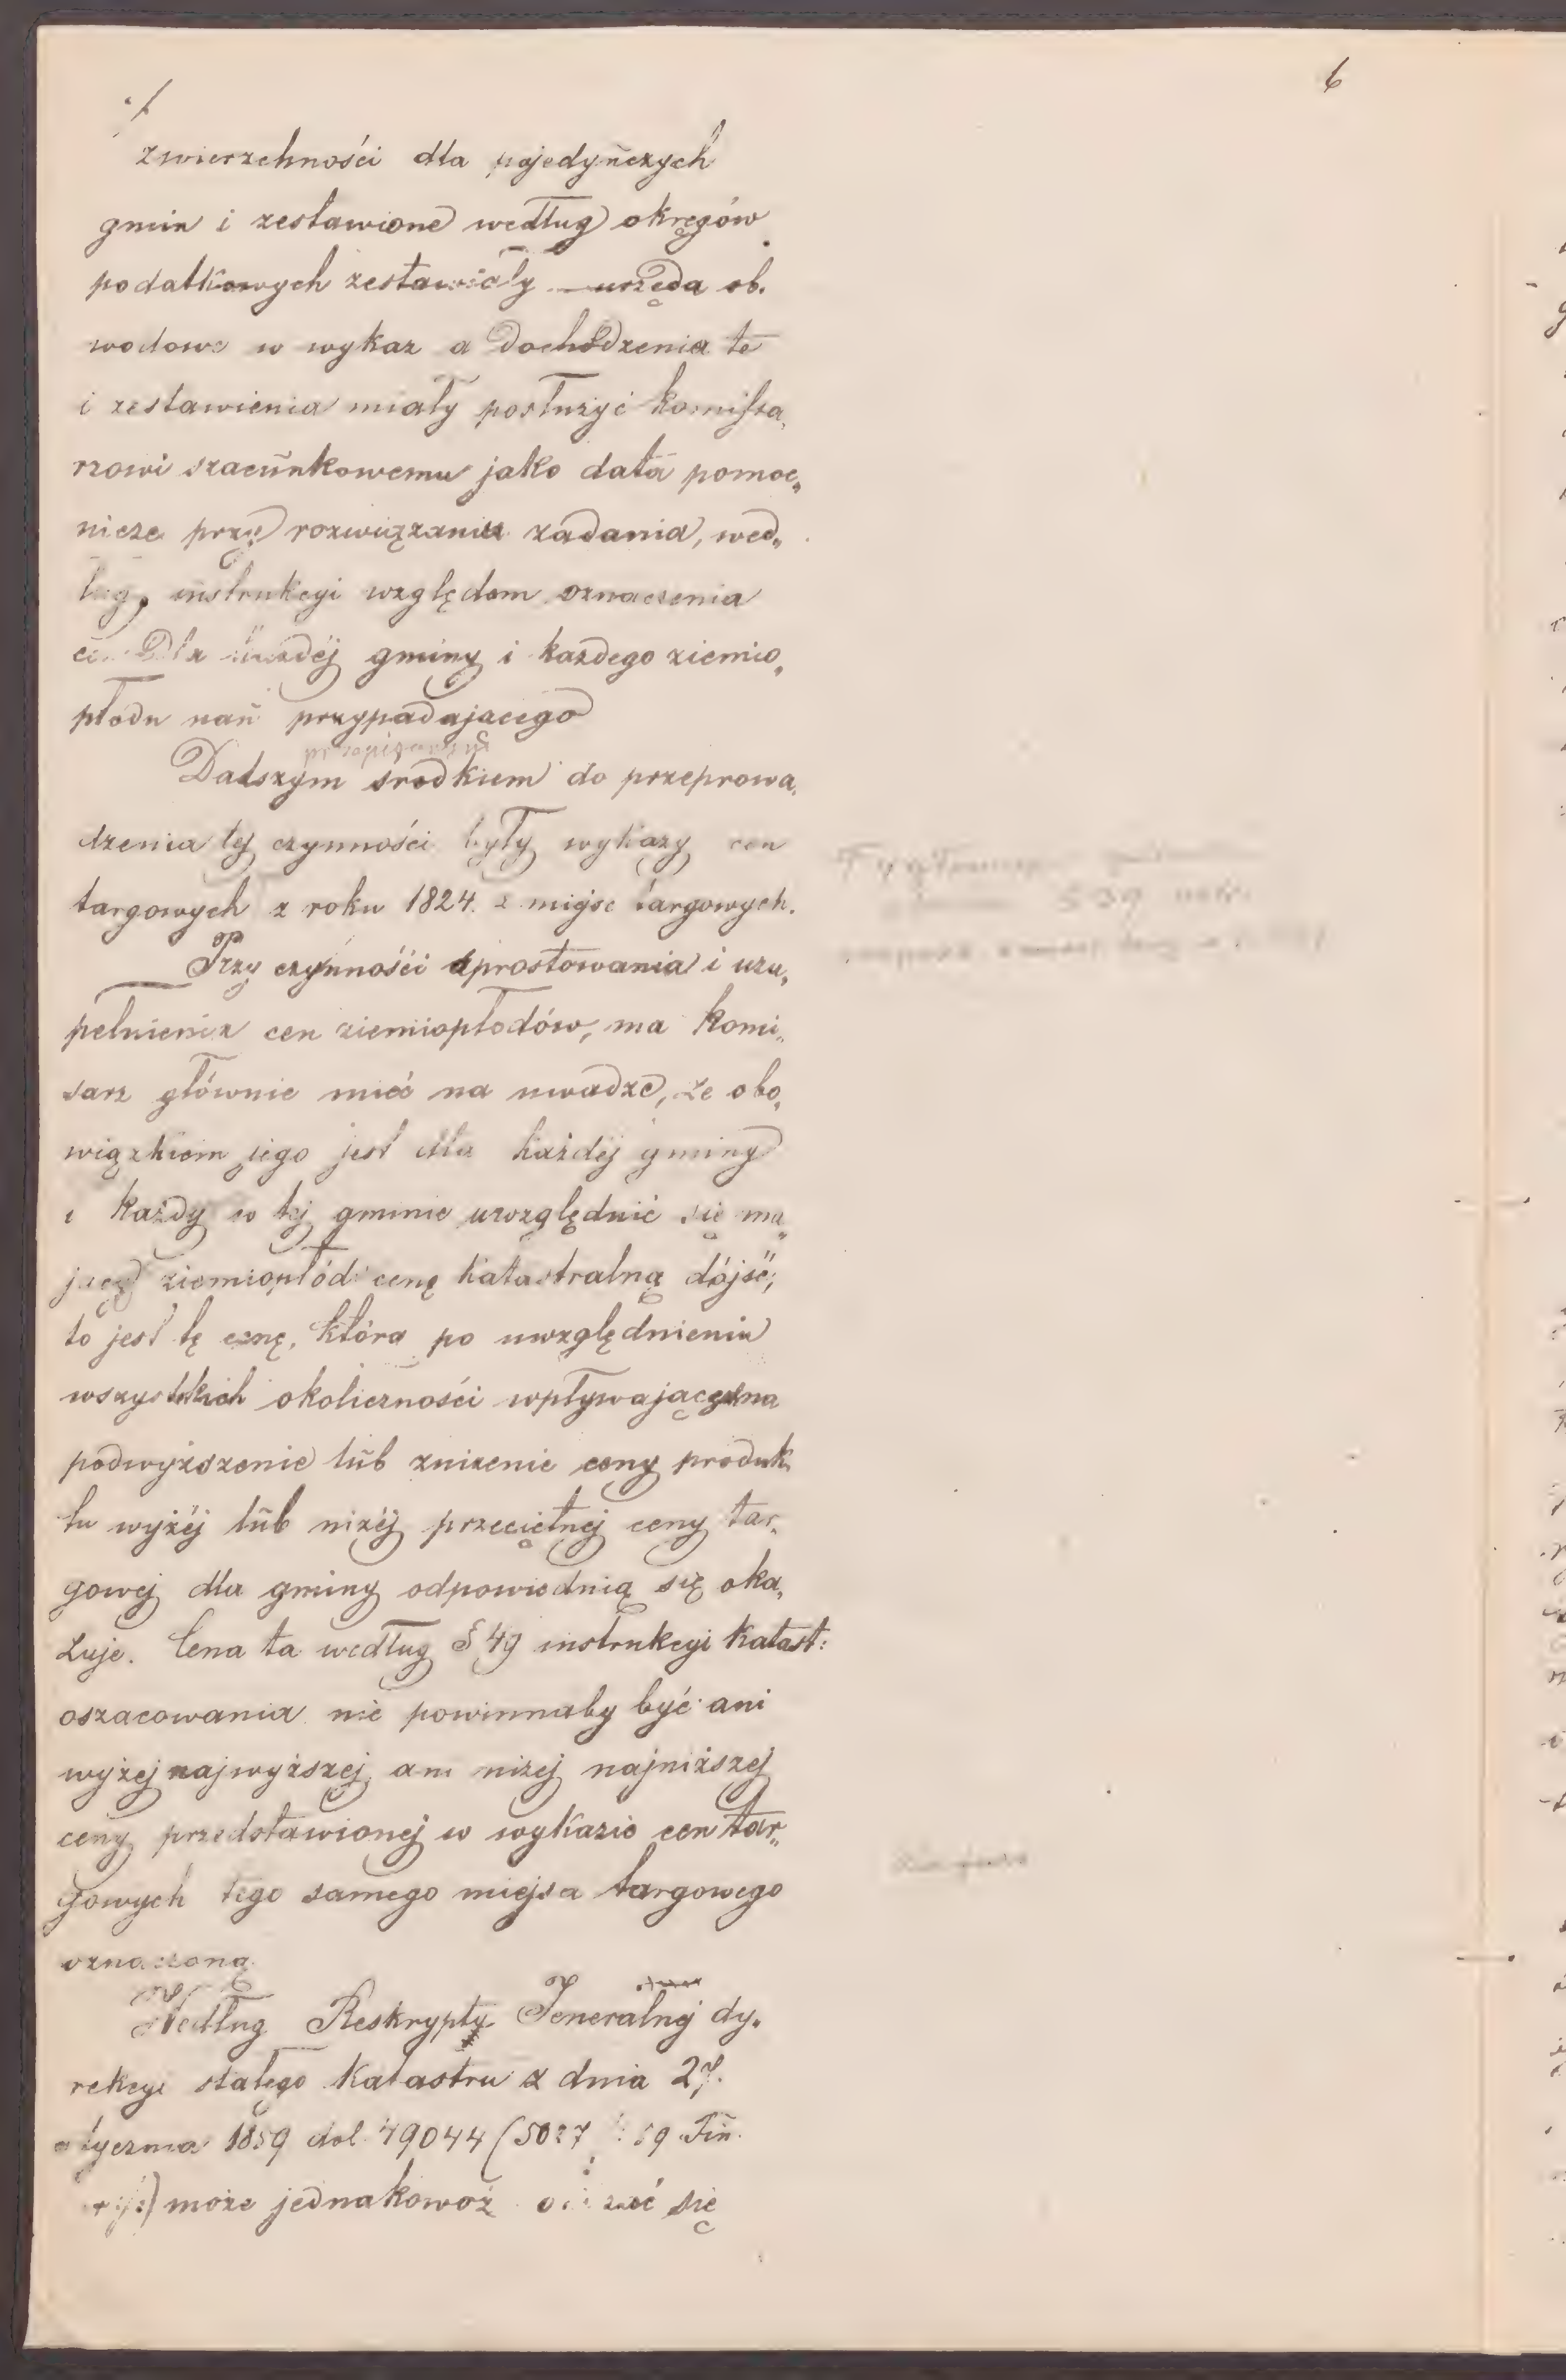 6
./.
zwierzchności dla pojedyńczych
gmin i zestawione według okręgów
podatkowych zestawiały urzęda ob„
wodowe w wykaz a dochodzenia te
i zestawienia miały posłużyć komissa„
rzowi szacunkowemu jako data pomoc„
nicze przy rozwiązaniu zadania, wed„
ług instrukcyi względem oznaczenia
cen dla każdéj gminy i każdego ziemio„
płodu nań przypadajacego
Dalszym srodkiem do przeprowa„
dzenia tej czynności były wykazy cen
targowych z roku 1824. z miejsc targowych.
Przy czynnośći sprostowania i uzu„
pełnienia cen ziemiopłodów, ma komi„
sarz głównie mieć na uwadze, że obo„
wiązkiem jego jest dla każdéj gminy
i każdy w tej gminie uwzględnić się ma„
jący ziemiopłód cenę katastralną dójść,
to jest tę cenę, która po uwzględnieniu
wszystkich okoliczności wpływających na
podwyższenie lub zniżenie ceny produk„
tu wyżéj lub niżéj przeciętnej ceny tar„
gowej dla gminy odpowiednią się oka„
zuje. Cena ta według § 49 instrukcyi katast:
oszacowania nie powinnaby być ani
wyżej najwyższej ani niżej najniższej
ceny przedstawionej w wykazie cen tar„
gowych tego samego miejsca targowego
oznaczoną.
Według Reskrypty Jeneralnej dy„
rekcyi stałego katastru z dnia 27.
stycznia 1859 dol. 49044 (5027 59 Fin.
może jednakowoż się